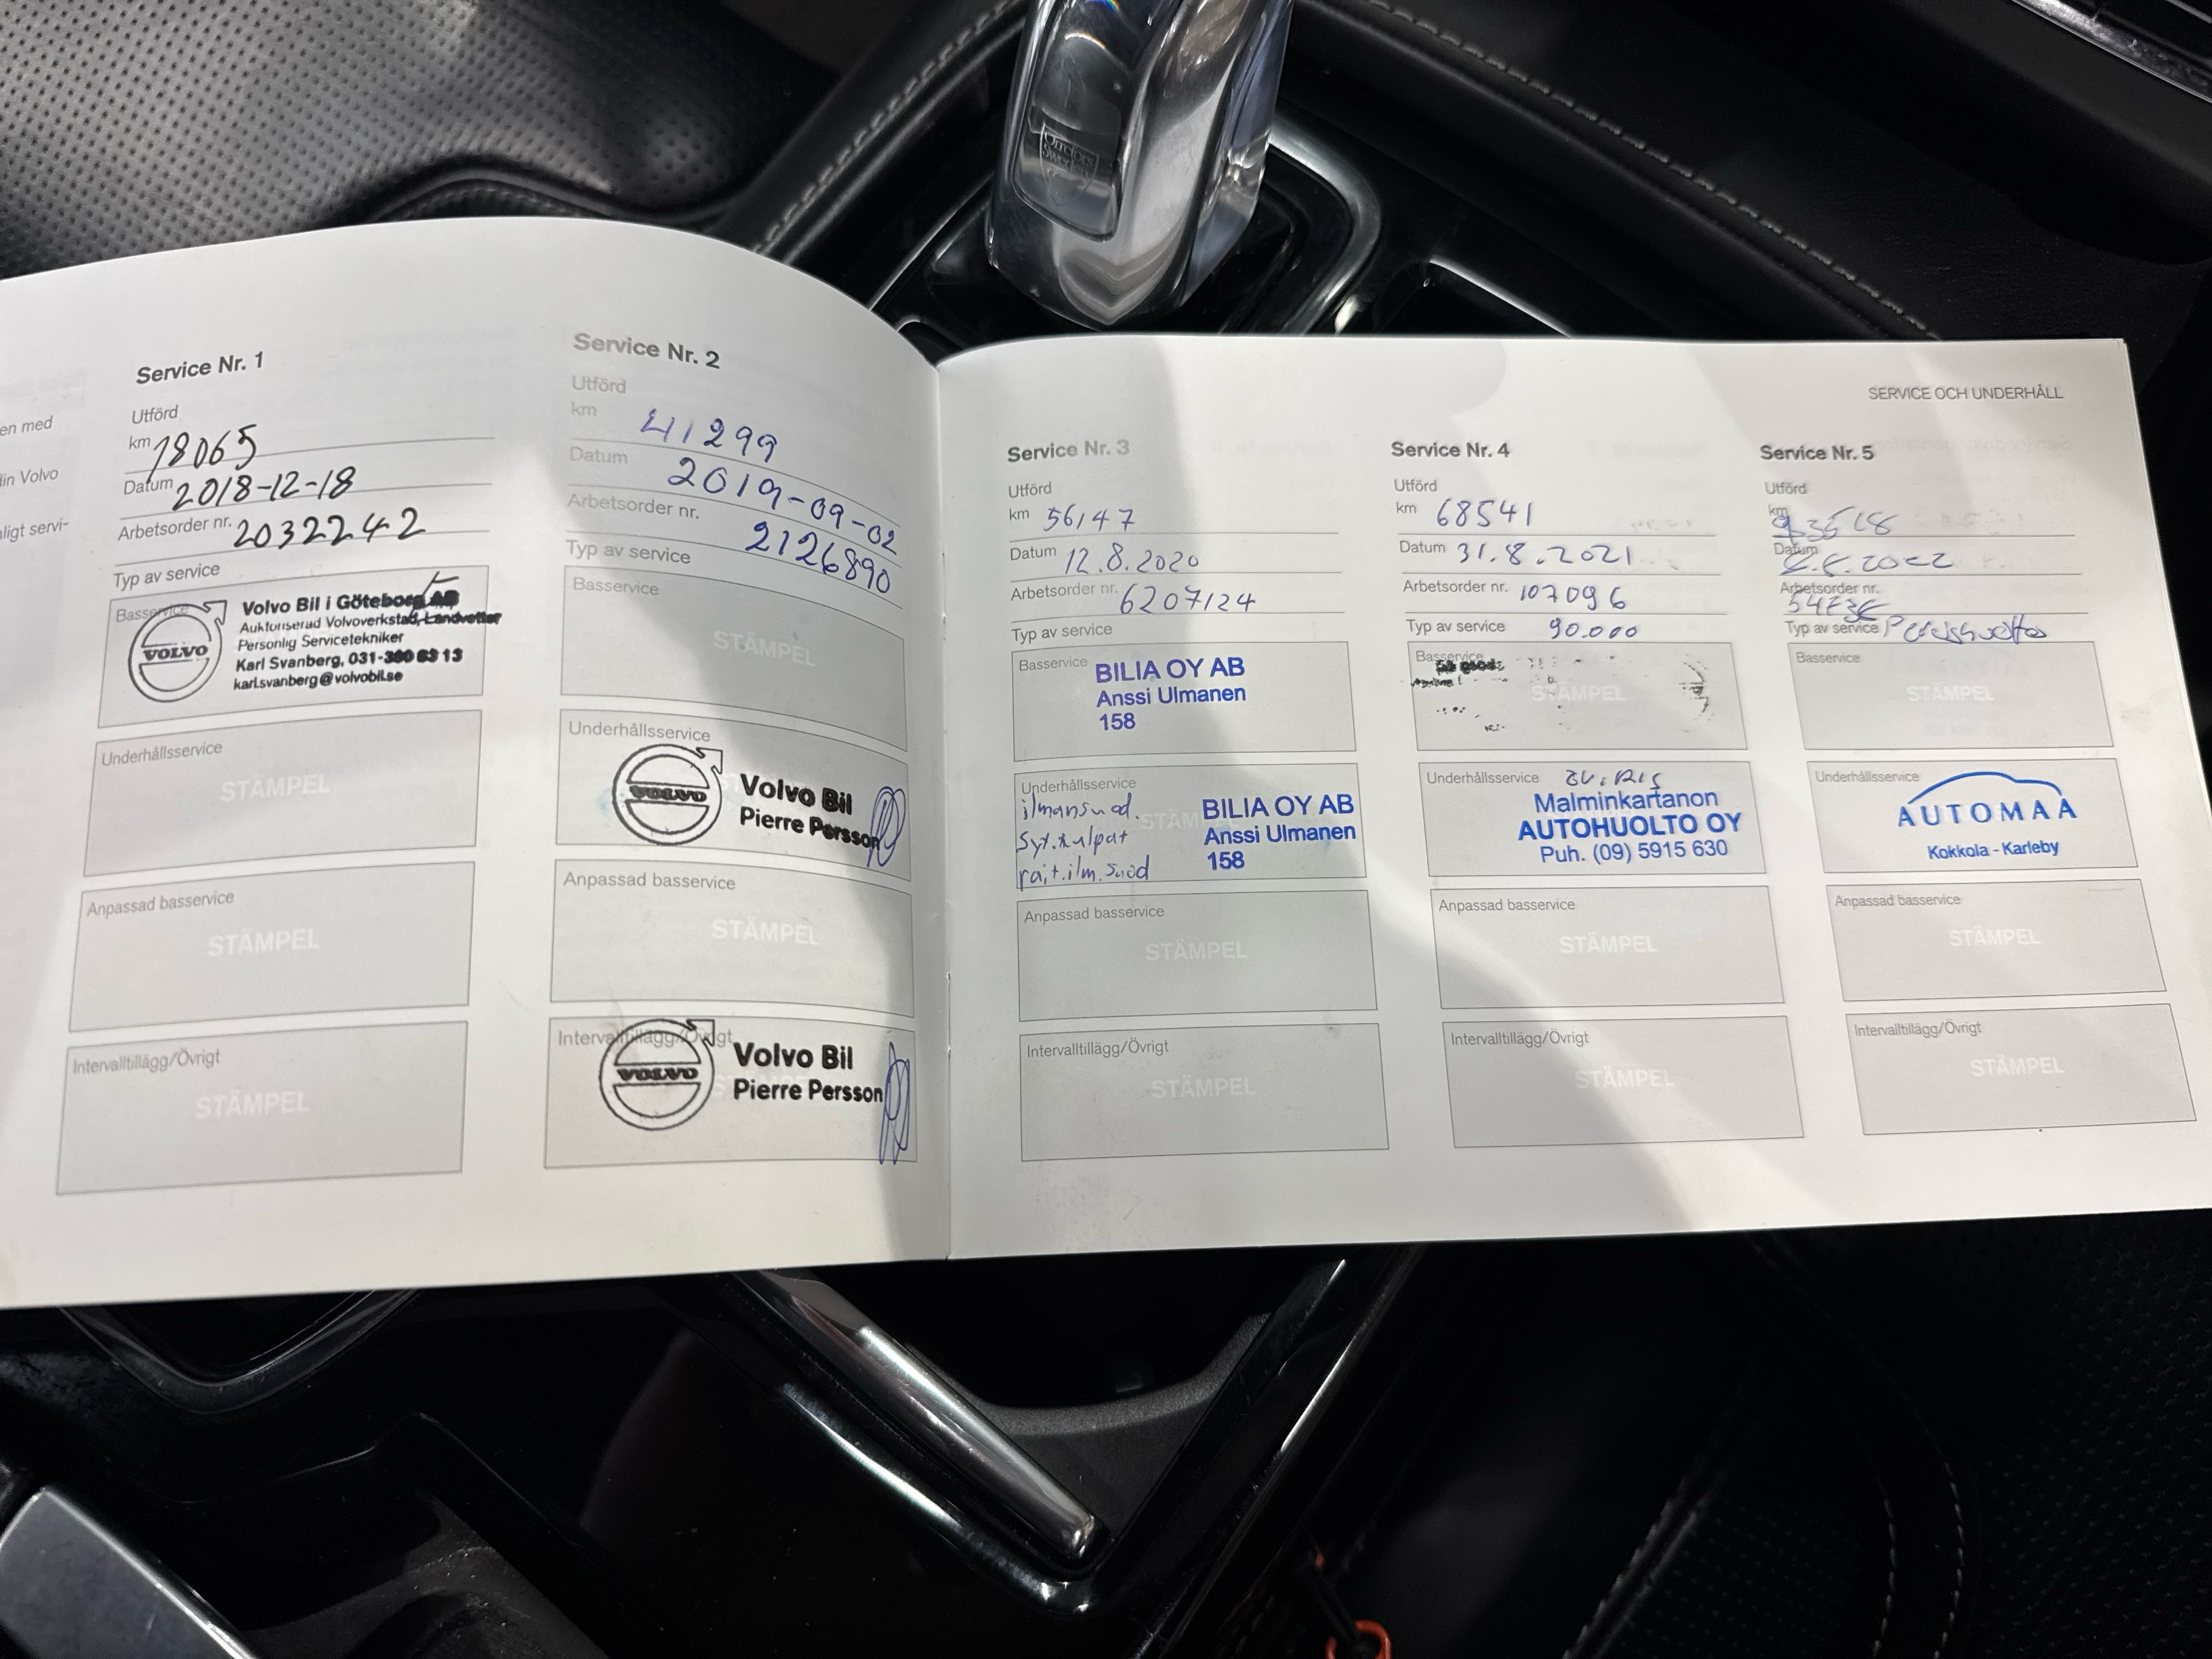 Orrefors
Sweden
en med
din Volvo
nligt servi-
Service Nr. 1
Utförd
km 18065
Datum 2018-12-18
Arbetsorder nr. 2032242
Typ av service
Basservice
VOLVO
Volvo Bil i Göteborg AB
Auktoriserad Volvoverkstad, Landvetter
Personlig Servicetekniker
Karl Svanberg, 031-
karl.svanberg@volvobil.se
Underhållsservice
STÄMPEL
Anpassad basservice
STÄMPEL
Intervalltillägg/Övrigt
STÄMPEL
Service Nr. 2
Utförd
km 41299
Datum 2019-09-02
Arbetsorder nr. 2126890
Typ av service
Basservice
STÄMPEL
Underhållsservice
VOLVO
Volvo Bil
Pierre Persson
Anpassad basservice
STÄMPEL
Intervalltillägg/Övrigt
VOLVO
Volvo Bil
Pierre Persson
SERVICE OCH UNDERHÅLL
Service Nr. 3
Utförd
km 56147
Datum 12.8.2020
Arbetsorder nr. 6207124
Typ av service
Basservice
BILIA OY AB
Anssi Ulmanen
158
Underhållsservice
STÄMPEL
ilmansuod.
Syt.tulpat
rait.ilm.suod
BILIA OY AB
Anssi Ulmanen
158
Anpassad basservice
STÄMPEL
Intervalltillägg/Övrigt
STÄMPEL
Service Nr. 4
Utförd
km 68541
Datum 31.8.2021
Arbetsorder nr. 107096
Typ av service 90.000
Basservice
STÄMPEL
Underhållsservice
Malminkartanon
AUTOHUOLTO OY
Puh. (09) 5915 630
Anpassad basservice
STÄMPEL
Intervalltillägg/Övrigt
STÄMPEL
Service Nr. 5
Utförd
km
Datum
Arbetsorder nr.
Typ av service Perushuolto
Basservice
STÄMPEL
Underhållsservice
AUTOMAA
Kokkola - Karleby
Anpassad basservice
STÄMPEL
Intervalltillägg/Övrigt
STÄMPEL